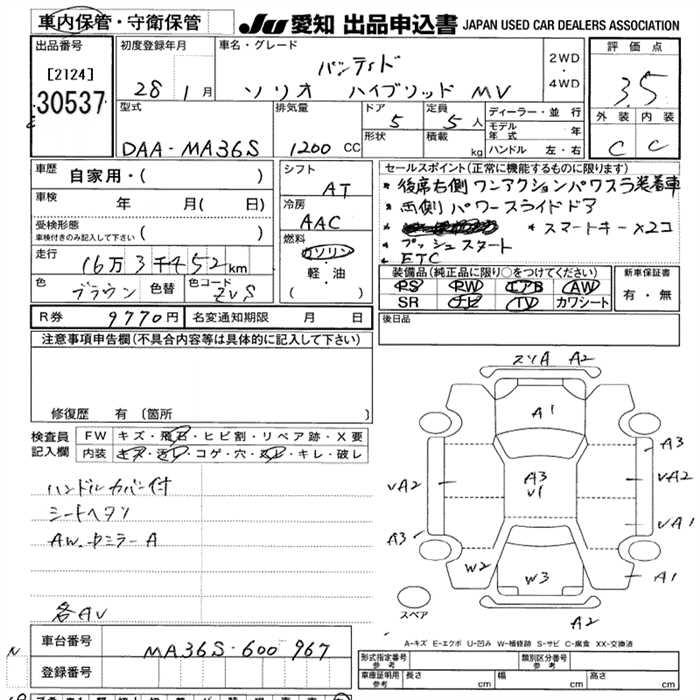 車内保管・守衛保管
JU 愛知 出品申込書 JAPAN USED CAR DEALERS ASSOCIATION
出品番号
[2124]
30537
初度登録年月
28 1月
車名・グレード
バンディド
ソリオ ハイブリッド MV
2WD
・
4WD
評価点
3.5
外装 内装
C C
型式
DAA-MA36S
排気量
1200 CC
ドア
5
形状
定員
5人
積載
kg
ディーラー・並行
モデル年式 年
ハンドル 左・右
車歴
自家用・( )
車検
年 月( 日)
受検形態
車検付きのみ記入して下さい ( )
走行
16万3千452km
色
ブラウン
色替
色コード
ZVS
シフト
AT
冷房
AAC
燃料
ガソリン
・
軽・油
( )
セールスポイント(正常に機能するものに限ります)
* 後席右側ワンアクションパワスラ装着車
* 両側パワースライドドア
* スマートキーx2コ
* プッシュスタート
* ETC
装備品(純正品に限り○をつけてください)
PS PW エアB AW
SR ナビ TV カワシート
新車保証書
有・無
R券 9770円
名変通知期限 月 日
後日品
注意事項申告欄(不具合内容等は具体的に記入して下さい)
修復歴 有(箇所 )
検査員
記入欄
FW キズ・飛石・ヒビ割・リペア跡・X要
内装 キズ・汚レ・コゲ・穴・スレ・キレ・破レ
ハンドルカバー付
シートヘタリ
AW.ドミラーA
各AV
スリA A2
A1
A3
V1
A3
VA2
VA2
VA1
A3
W2
W3
A1
A2
スペア
A-キズ E-エクボ U-凹み W-補修跡 S-サビ C-腐食 XX-交換済
車台番号
MA36S-600967
登録番号
N
形式指定番号
参考
類別区分番号
参考
車庫証明用
参考
長さ cm
幅 cm
高さ cm